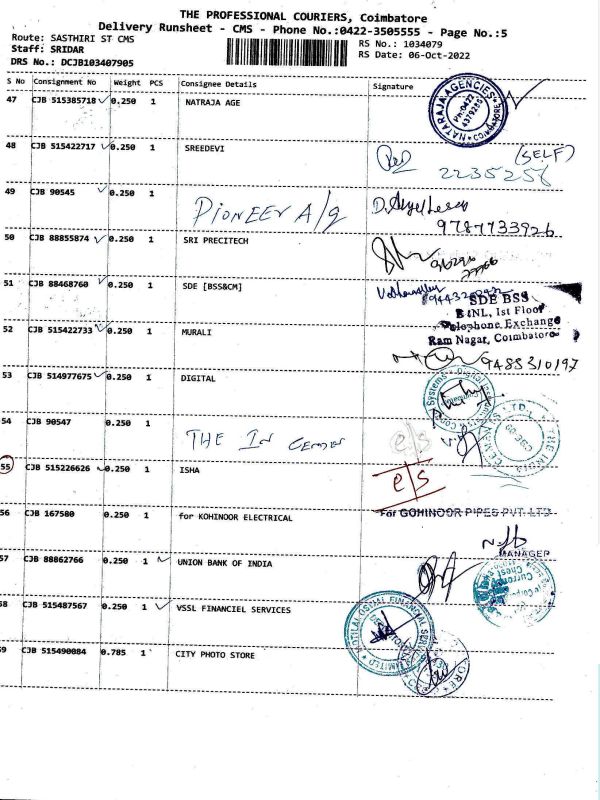 THE PROFESSIONAL COURIERS, Coimbatore
Delivery Runsheet - CMS - Phone No.:0422-3505555 - Page No.:5
Route: SASTHIRI ST CMS
Staff: SRIDAR
DRS No.: DCJB103407905
RS No.: 1034079
RS Date: 06-Oct-2022
S No Consignment No Weight PCS Consignee Details Signature
47 CJB 515385718 0.250 1 NATRAJA AGE
NATARAJA AGENCIES
Ph:0422
4379266
COIMBATORE
48 CJB 515422717 0.250 1 SREEDEVI
(SELF)
2235256
49 CJB 90545 0.250 1 PIONEER A/g
9787733926
50 CJB 88855874 0.250 1 SRI PRECITECH
51 CJB 88468760 0.250 1 SDE [BSS&CM]
SDE BSS
BSNL, Ist Floor
Telephone Exchange
Ram Nagar, Coimbatore
52 CJB 515422733 0.250 1 MURALI
9488310197
53 CJB 514977675 0.250 1 DIGITAL
54 CJB 90547 0.250 1 THE IN Cement
e/s
55 CJB 515226626 0.250 1 ISHA
e/s
56 CJB 167580 0.250 1 for KOHINOOR ELECTRICAL
For GOHINOOR PIPES PVT. LTD
MANAGER
57 CJB 88862766 0.250 1 UNION BANK OF INDIA
Currency
Chest
58 CJB 515487567 0.250 1 VSSL FINANCIEL SERVICES
MOTILAL OSWAL FINANCIAL SERVICES LIMITED
59 CJB 515490084 0.785 1 CITY PHOTO STORE